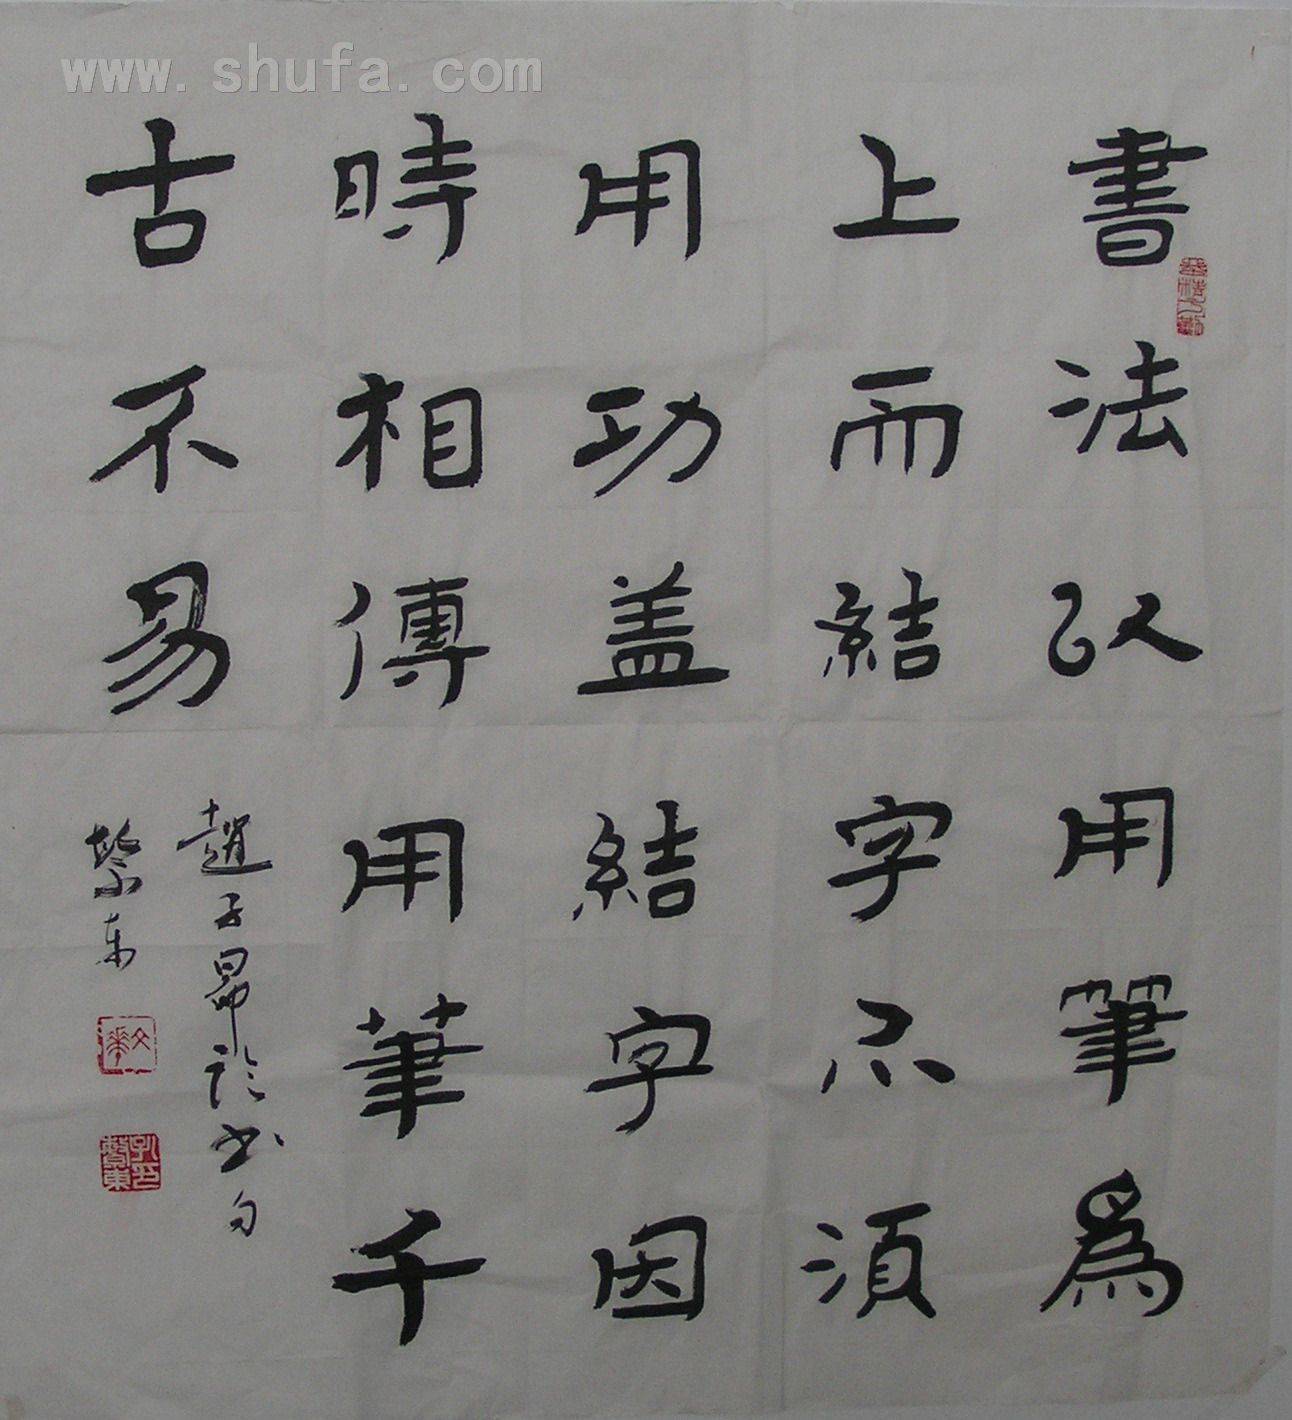 www.shufa.com
書法以用筆為
上而結字亦須
用功盖結字因
時相傳用筆千
古不易
趙子昂論書句
東